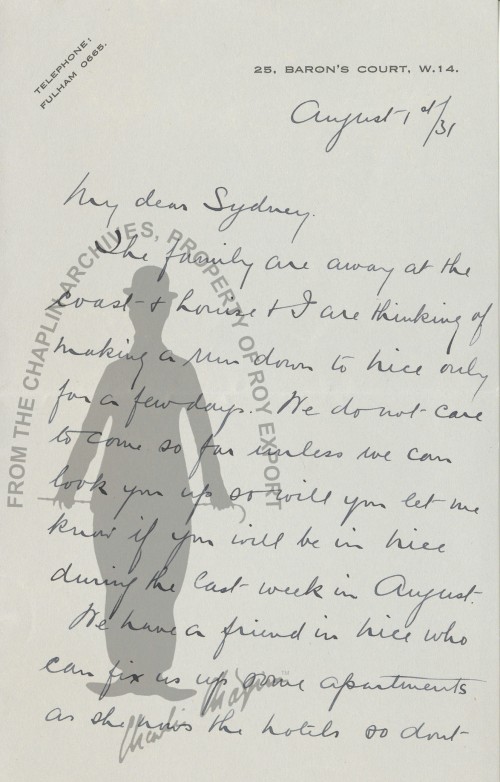 TELEPHONE:
FULHAM 0665.
25, BARON'S COURT, W.14.
August 1st/31
My dear Sydney.
The family are away at the
coast & & I are thinking of
making a run down to Nice only
for a few days. We do not care
to come so far unless we can
look you up so will you let me
know if you will be in Nice
during the last week in August.
We have a friend in Nice who
can fix us up some apartments
as she runs the hotels so dont
FROM THE CHAPLIN ARCHIVES, PROPERTY OF ROY EXPORT
Charlie Chaplin™